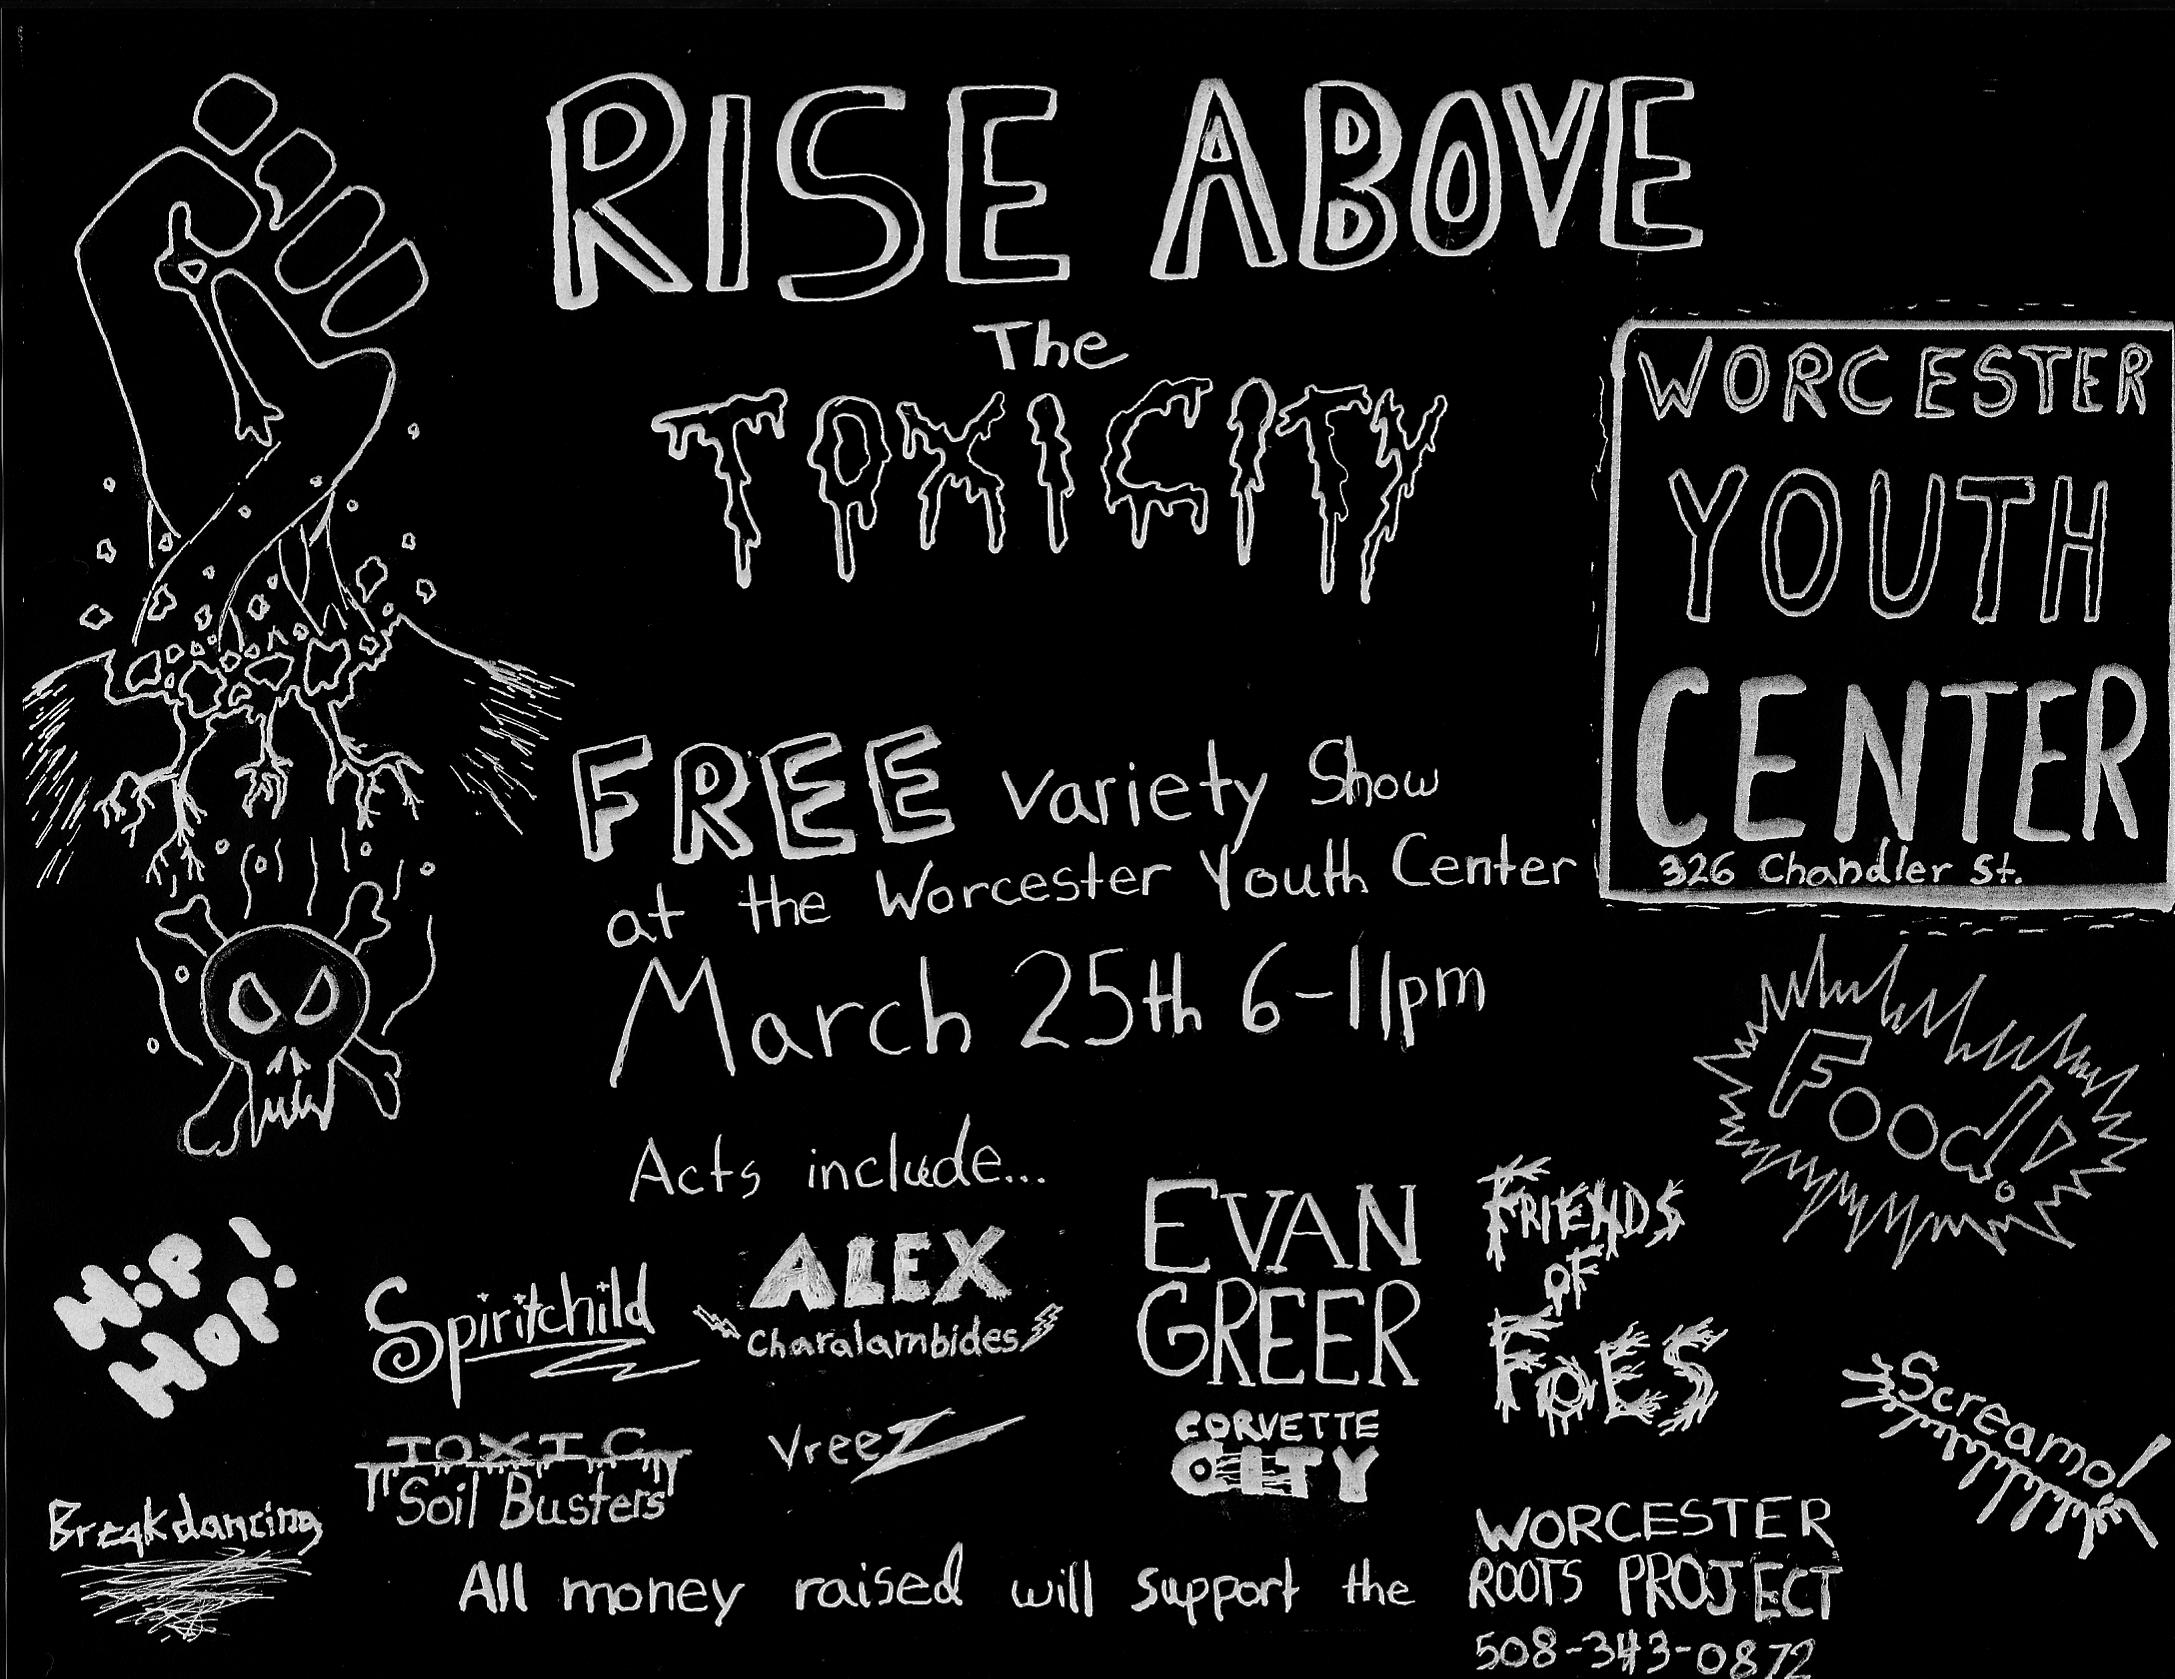 RISE ABOVE
The
TOXICITY
WORCESTER
YOUTH
CENTER
326 Chandler St.
FREE variety Show
at the Worcester Youth Center
March 25th 6-11pm
Food!
Acts include...
Hip
Hop!
Spiritchild
ALEX
Charalambides
EVAN
GREER
FRIENDS
OF
FOES
Screamo!
Breakdancing
TOXIC
Soil Busters
VreeZ
CORVETTE
CITY
All money raised will support the
WORCESTER
ROOTS PROJECT
508-343-0872